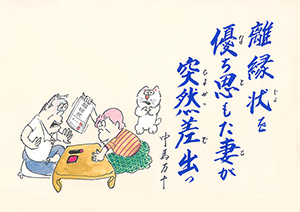 離縁状を
優ち思もた妻が
突然差出っ